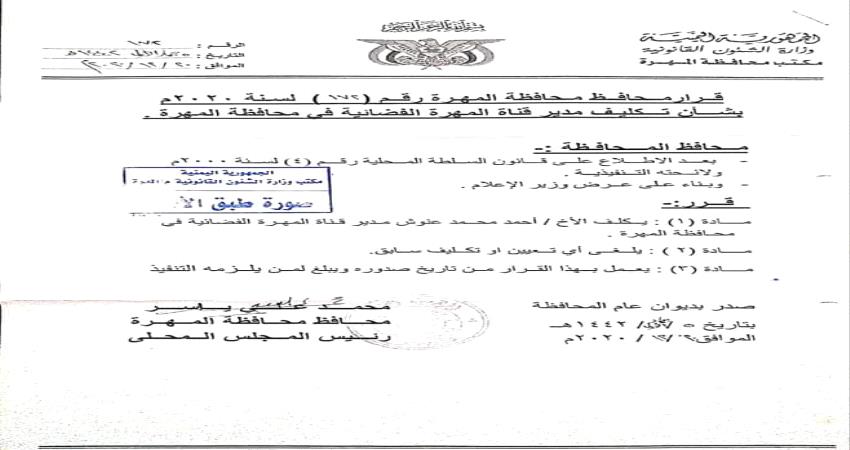 الجمهورية اليمنية
وزارة الشئون القانونية
مكتب محافظة المهرة
الرقم : ١٧٢
التاريخ :
الموافق : ٢٠٢٠/١٢/٢٠
قرار محافظ محافظة المهرة رقم (١٧٢) لسنة ٢٠٢٠م
بشأن تكليف مدير قناة المهرة الفضائية في محافظة المهرة .
محافظ المحافظة :-
- بعد الاطلاع على قانون السلطة المحلية رقم (٤) لسنة ٢٠٠٠م
ولائحته التنفيذية .
- وبناء على عرض وزير الإعلام .
الجمهورية اليمنية
مكتب وزارة الشئون القانونية م المهرة
صورة طبق الأ
قرر:-
مادة (١) : يكلف الأخ / أحمد محمد عنوش مدير قناة المهرة الفضائية في
محافظة المهرة .
مادة (٢) : يلغى أي تعيين او تكليف سابق.
مادة (٣) : يعمل بهذا القرار من تاريخ صدوره ويبلغ لمن يلزمه التنفيذ
صدر بديوان عام المحافظة
بتاريخ ٥ / / ١٤٤٢هـ
الموافق / ١٢ / ٢٠٢٠م
محمد علي ياسر
محافظ محافظة المهرة
رئيس المجلس المحلي